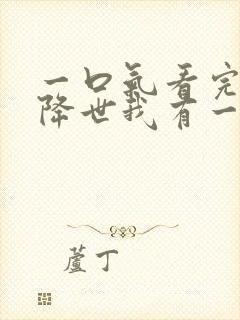 一口氣看完
降世我有一
蘆丁